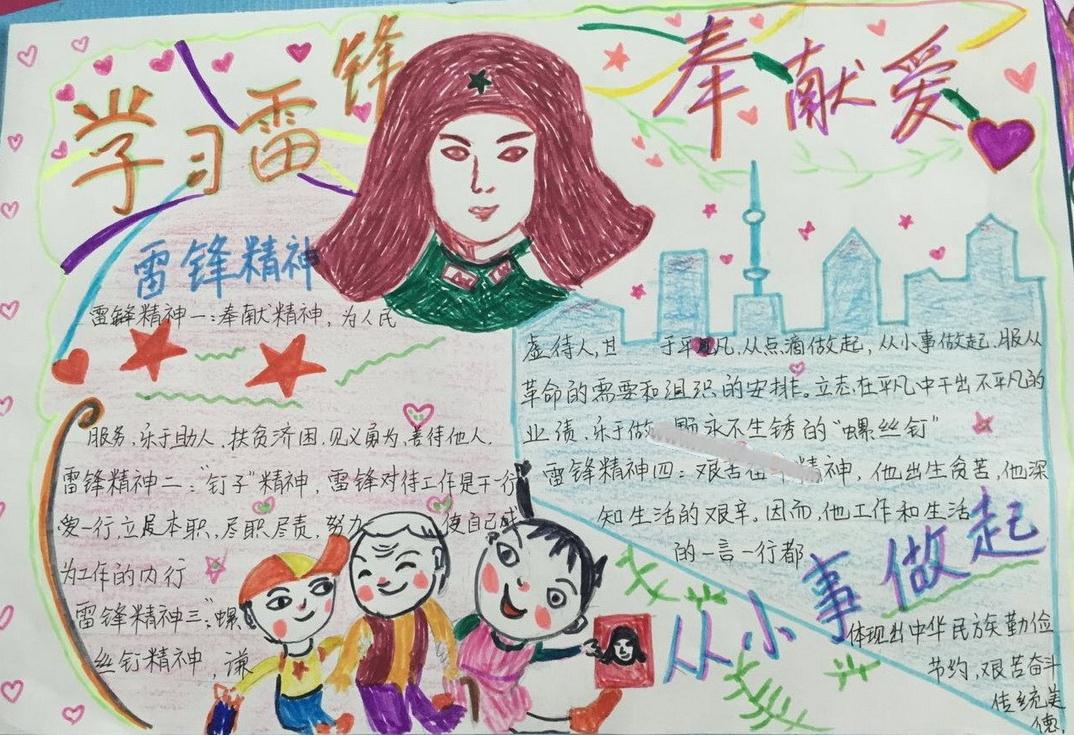 学习雷锋
奉献爱
雷锋精神
雷锋精神一：奉献精神，为人民
服务，乐于助人，扶贫济困，见义勇为，善待他人.
雷锋精神二：“钉子”精神，雷锋对待工作是干一行
爱一行，立足本职，尽职尽责，努力 使自己成
为工作的内行
雷锋精神三：“螺
丝钉精神，谦
虚待人，甘 于平凡，从点滴做起，从小事做起，服从
革命的需要和组织的安排。立志在平凡中干出不平凡的
业绩，乐于做 颗永不生锈的“螺丝钉”
雷锋精神四：艰苦奋斗精神，他出生贫苦，他深
知生活的艰辛。因而，他工作和生活
的一言一行都
体现出中华民族勤俭
节约，艰苦奋斗
传统美
德，
从小事做起